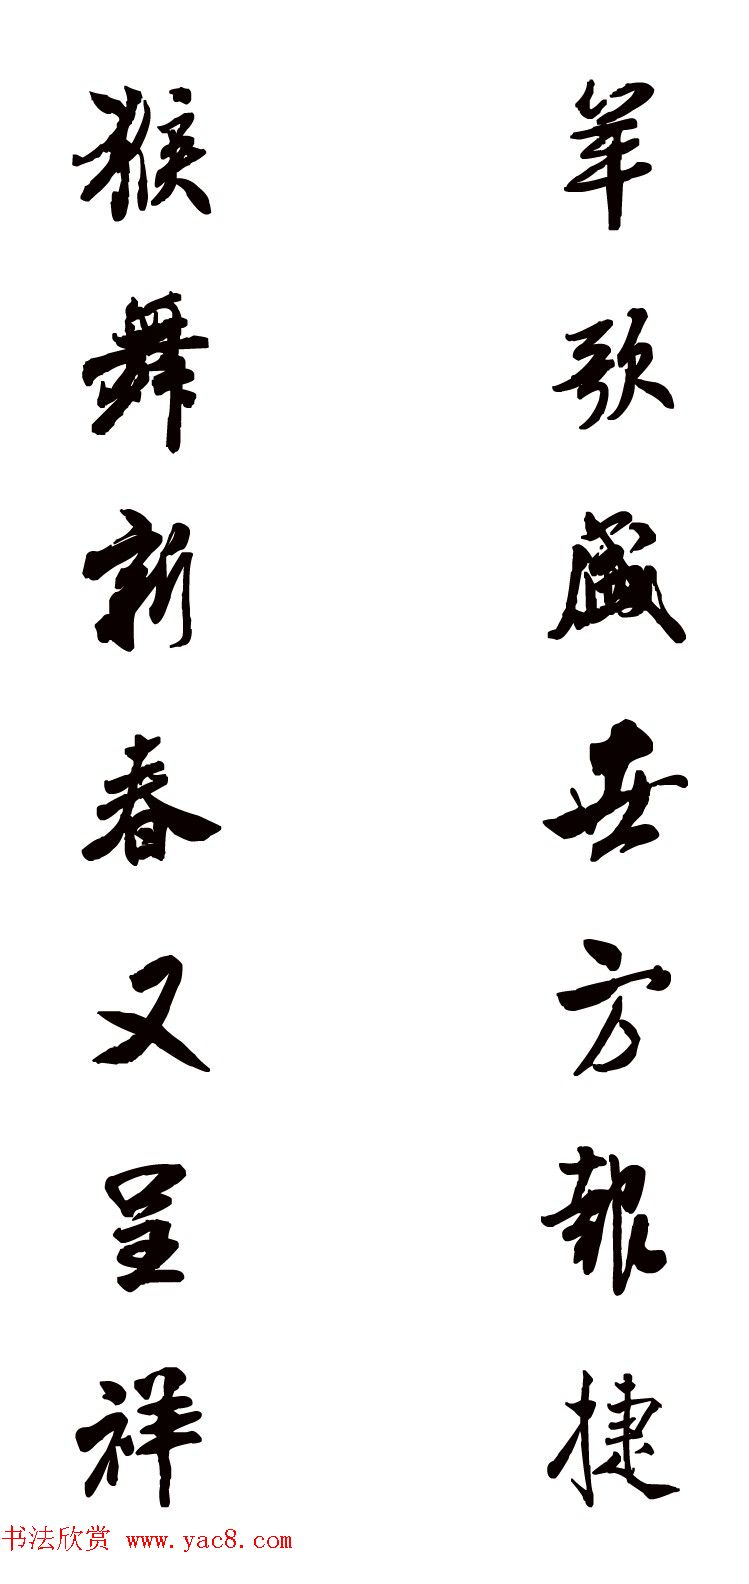 羊歌盛世方報捷
猴舞新春又呈祥
书法欣赏 www.yac8.com